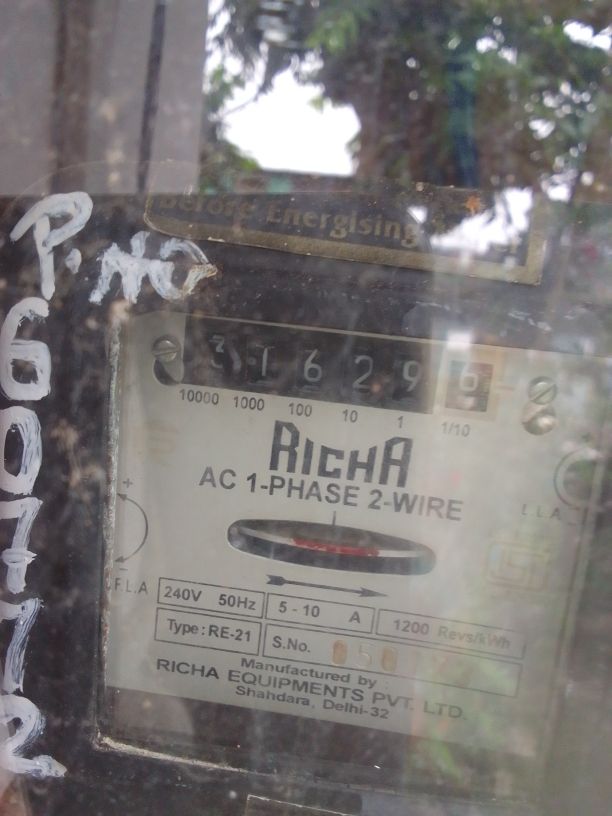 Before Energising
P. NO
607772
3 1 6 2 9 6
10000 1000 100 10 1 1/10
RICHA
AC 1-PHASE 2-WIRE
L.L.A
+
+
-
F.L.A
240V 50Hz 5 - 10 A 1200 Revs/kWh
Type : RE-21 S.No. 050
Manufactured by
RICHA EQUIPMENTS PVT. LTD.
Shahdara, Delhi-32